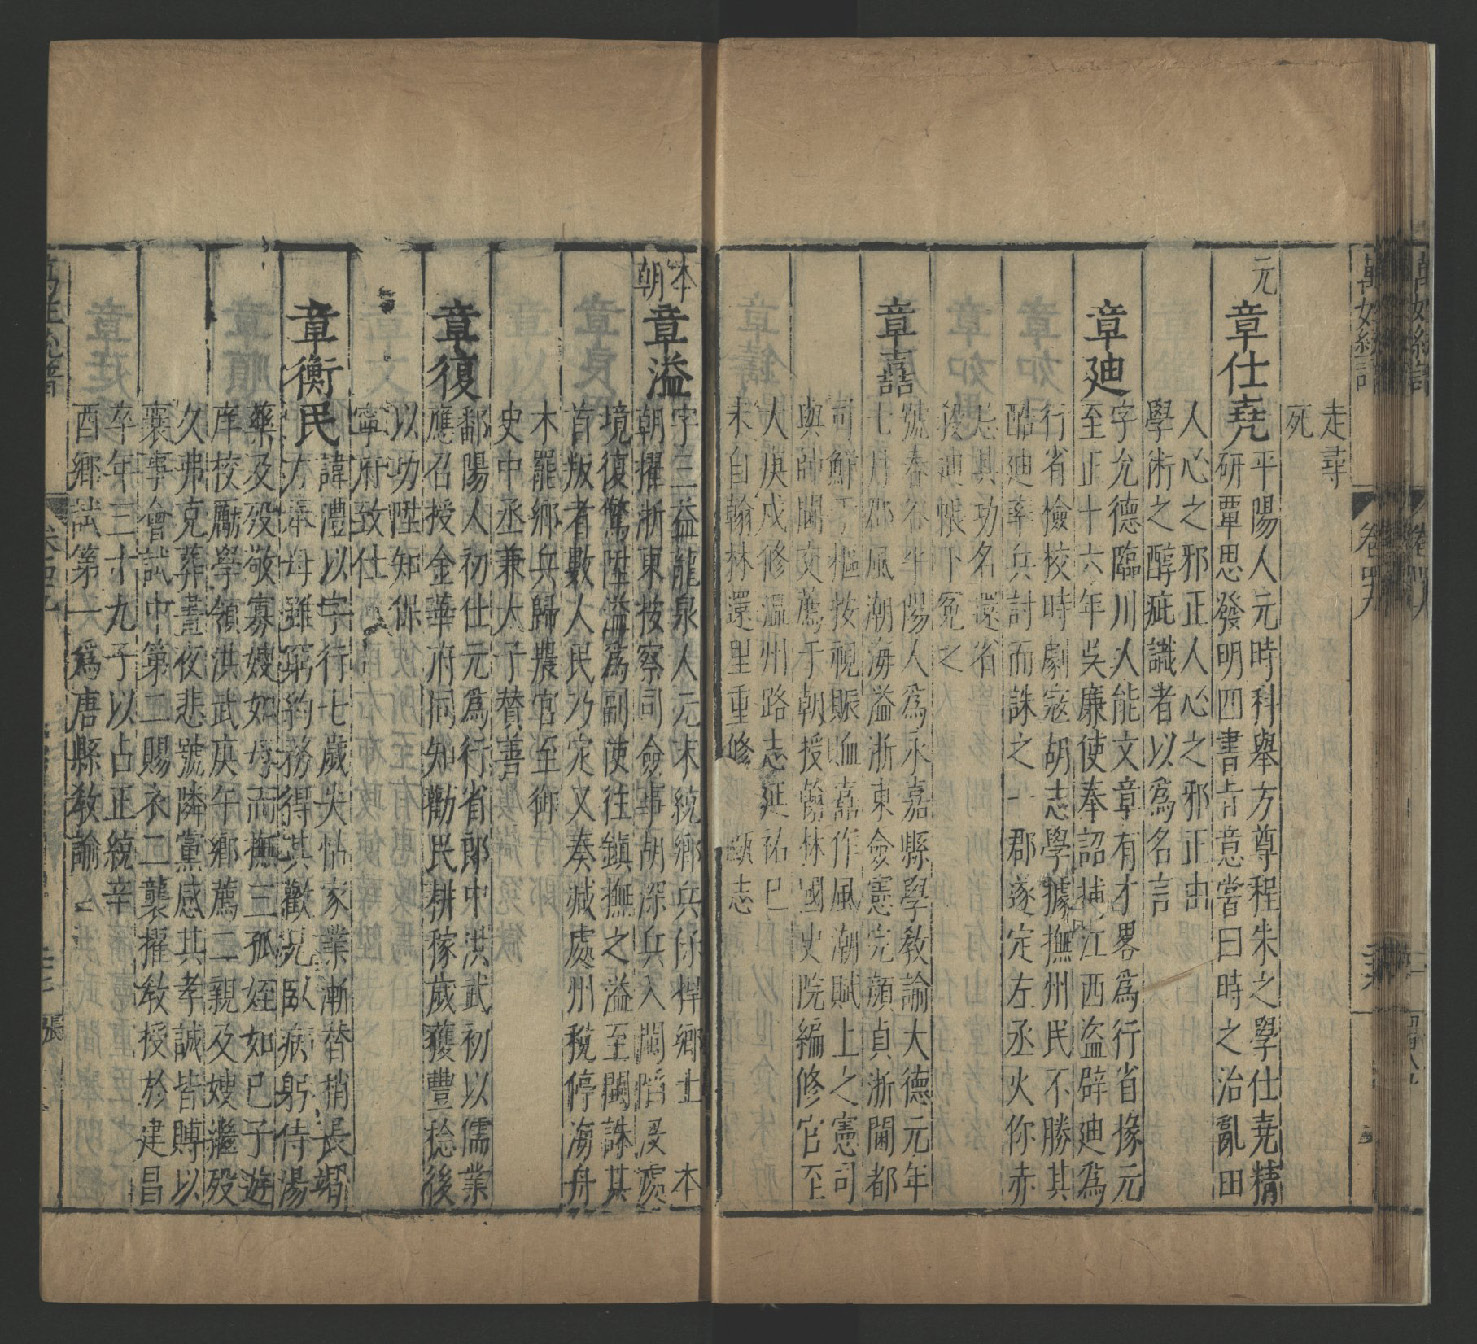 走尋
死
元
章仕堯
平陽人元時科舉方尊程朱之學仕堯精
研覃思發明四書旨意嘗曰時之治亂由
人心之邪正人心之邪正由
學術之醇疵識者以為名言
章廸
字允德臨川人能文章有才畧為行省掾元
至正十六年吳廉使奉詔捕江西盜辟廸為
行省檢校時劇寇胡志學據撫州民不勝其
酷廸率兵討而誅之一郡遂定左丞火你赤
忌其功名還省
後廸帳下冤之
章嘉
號春谷平陽人為永嘉縣學教諭大德元年
七月郡風潮海溢浙東僉憲完顏貞浙閫都
司鮮于樞按視賑血嘉作風潮賦上之憲司
與帥閫交薦于朝授翰林國史院編修官至
大庚戌修溫州路志延祐巳
未自翰林還里重修 顯志
本
朝
章溢
字三益龍泉人元末統鄉兵保桿鄉土 本
朝擢浙東按察司僉事胡深兵入閩陷沒處
境復驚陞溢為副使往鎮撫之溢至閩誅其
首叛者數人民乃定又奏減處州稅停海舟
木罷鄉兵歸農官至御
史中丞兼太子贊善
章復
鄱陽人初仕元為行省郎中洪武初以儒業
應召授金華府同知勸民耕稼歲獲豐稔後
以功陞知保
寧府致仕
章衡民
諱澧以字行七歲失怙家業漸替稍長竭
力事母雖窮約務得其歡兄以臥病躬侍湯
藥及歿敬寡嫂如母而撫三孤姪如已子遊
庠校厲學領洪武庚午鄉薦二親及嫂繼歿
久弗克葬晝夜悲號隣黨感其孝誠皆賻以
襄事會試中第二賜衣二襲擢教授於建昌
卒年三十九子以占正統辛
酉鄉試第一為唐縣教諭